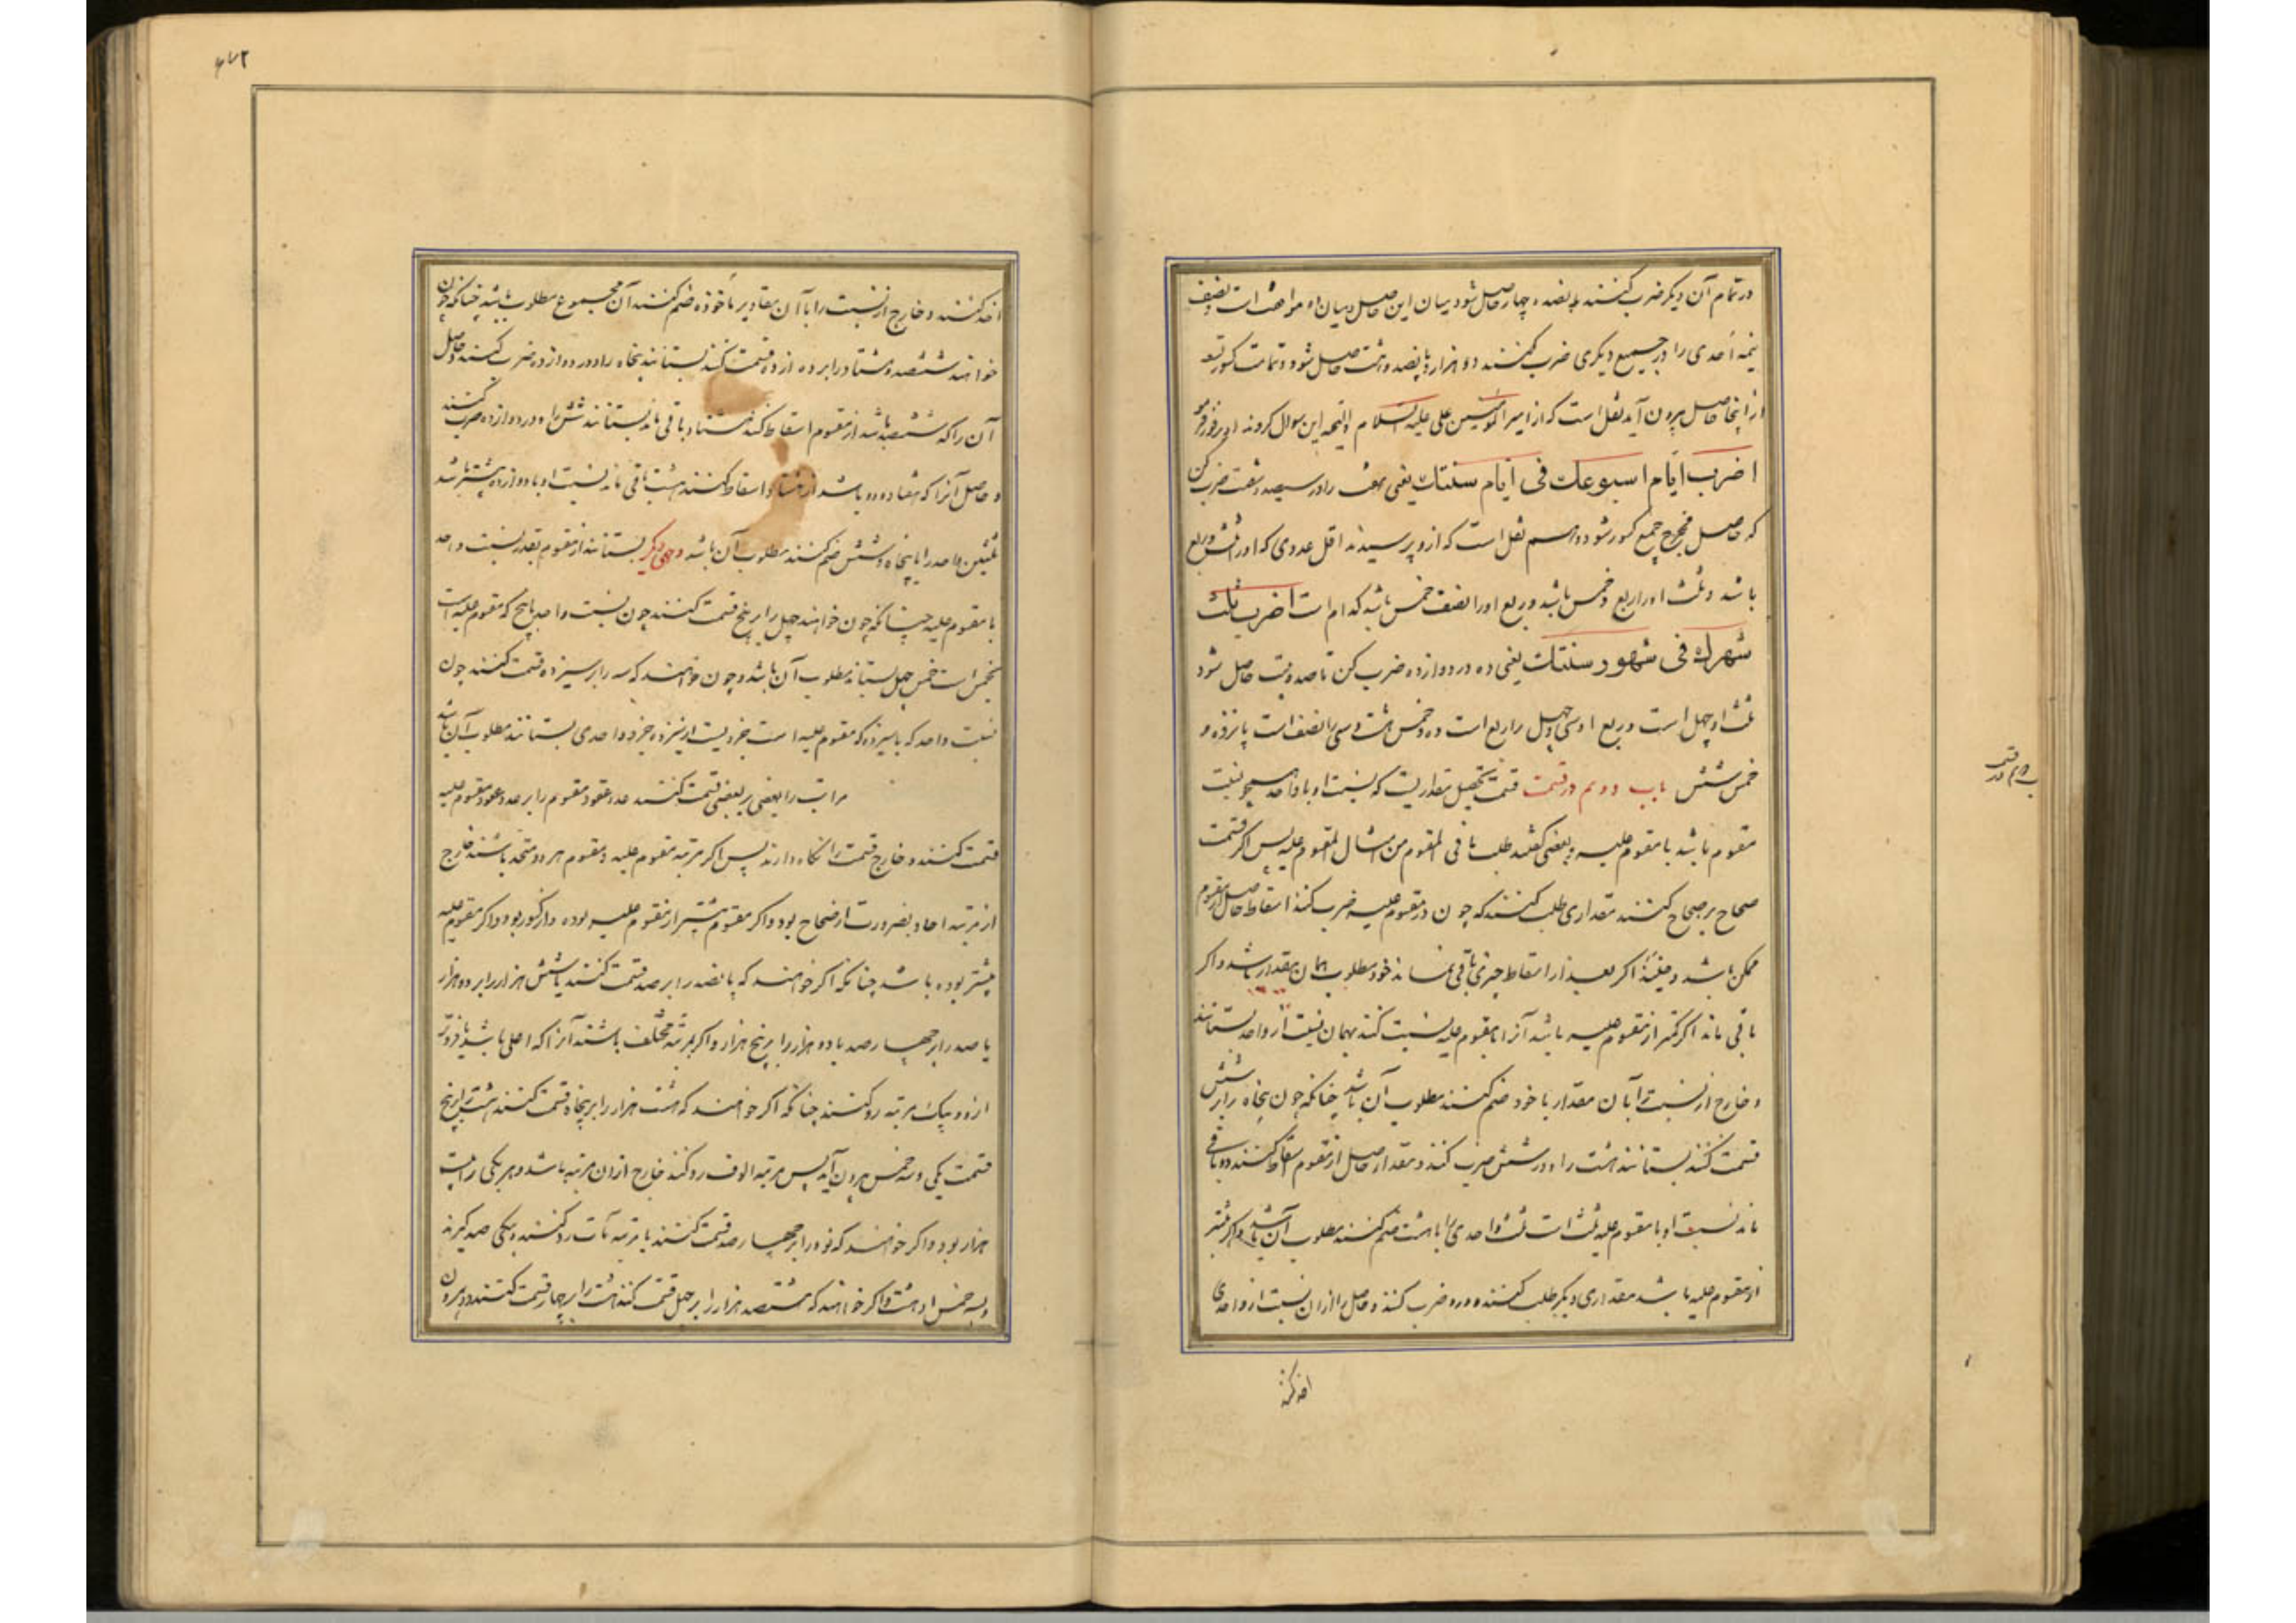 در تمام آن دیگر ضرب کنند پانصد و چهار حاصل شود میان این حاصل و میان ده موافقت است بنصف
نیمه احدی را در جمیع دیگری ضرب کنند دو هزار و پانصد و هشت حاصل شود و تمامت کسور تسعه
از اینجا حاصل بیرون آید نقل است که از امیر المؤمنین علی علیه السلام و التحیه این سوال کردند او بر فور فرمود
اضرب ایام اسبوعك فی ایام سنتك یعنی هفت را در سیصد و شصت ضرب کن
که حاصل مخرج جمیع کسور شود و هم نقل است که ازو پرسیدند اقل عددی که او را ثلث و ربع
باشد و ثلث او را ربع و خمس باشد و ربع او را نصف و خمس باشد کدام است اضرب ثلث
شهرك فی شهور سنتك یعنی ده در دوازده ضرب کن تا صد و بیست حاصل شود
ثلث او چهل است و ربع او سی و چهل را ربع است ده و خمس هشت و سی را نصف است پانزده و
خمس شش باب دوم در قسمت قسمت تحصیل مقداریست که نسبت او با واحد همچو نسبت
مقسوم باشد با مقسوم علیه و بعضی گفتند طلب ما فی المقسوم من امثال المقسوم علیه پس اگر قسمت
صحاح بر صحاح کنند مقداری طلب کنند که چون در مقسوم علیه ضرب کنند اسقاط حاصل از مقسوم
ممکن باشد و حینئذ اگر بعد از اسقاط چیزی باقی نماند خود مطلوب همان مقدار باشد و اگر
باقی ماند اگر کمتر از مقسوم علیه باشد آنرا با مقسوم علیه نسبت کنند بهمان نسبت از واحد بستانند
و خارج از نسبت را با آن مقدار ماخوذ ضم کنند مطلوب آن باشد چنانکه چون پنجاه را بر شش
قسمت کنند بستانند هشت را و در شش ضرب کنند و مقدار حاصل از مقسوم اسقاط کنند دو باقی
ماند نسبت او با مقسوم علیه ثلث است ثلث واحدی را با هشت ضم کنند مطلوب آن باشد و اگر بیشتر
از مقسوم علیه باشد مقداری دیگر طلب کنند و درو ضرب کنند و حاصل را از آن نسبت از واحدی
اخذ کنند
باب دوم در قسمت
۴۷۲
اخذ کنند و خارج از نسبت را با آن مقادیر ماخوذه ضم کنند آن مجموع مطلوب باشد چنانکه چون
خواهند ششصد و هشتاد را بر دوازده قسمت کنند بستانند پنجاه را و در دوازده ضرب کنند و حاصل
آن را که ششصد باشد از مقسوم اسقاط کنند هشتاد باقی ماند بستانند شش را و در دوازده ضرب کنند
و حاصل آنرا که هفتاد و دو باشد از هشتاد اسقاط کنند هشت باقی ماند نسبت او با دوازده بیشتر باشد
ثلثین واحد را با پنجاه و شش ضم کنند مطلوب آن باشد وجهی دیگر بستانند از مقسوم بقدر نسبت واحد
با مقسوم علیه چنانکه چون خواهند چهل را بر پنج قسمت کنند چون نسبت واحد با پنج که مقسوم علیه است
بخمس است خمس چهل بستانند مطلوب آن باشد و چون خواهند که سه را بر سیزده قسمت کنند چون
نسبت واحد که با سیزده که مقسوم علیه است جزویست از سیزده جزو واحدی بستانند مطلوب آن باشد
مراتب را بعضی بر بعضی قسمت کنند عدد عقود مقسوم را بر عدد عقود مقسوم علیه
قسمت کنند و خارج قسمت را نگاه دارند پس اگر مرتبه مقسوم علیه و مقسوم هر دو متحد باشند خارج
از مرتبه احاد بضرورت از صحاح بود و اگر مقسوم بیشتر از مقسوم علیه بوده و از کسور بود و اگر مقسوم علیه
بیشتر بوده باشد چنانکه اگر خواهند که پانصد را بر صد قسمت کنند یا شش هزار را بر دو هزار
یا صد را بر چهارصد یا دو هزار را بر پنج هزار و اگر بمرتبه مختلف باشند آنرا که اعلی باشد یا فروتر
از او بیک مرتبه رد کنند چنانکه اگر خواهند که هشت هزار را بر پنجاه قسمت کنند هشت را بر پنج
قسمت یکی و سه خمس بیرون آید پس مرتبه الوف رد کنند خارج از آن مرتبه باشد و هر یکی را بیست
هزار بود و اگر خواهند که نود را بر چهارصد قسمت کنند با مرتبه مآت رد کنند و یکی صد گیرند
و سه خمس او شصت و اگر خواهند که هشتصد هزار را بر چهل قسمت کنند هشت را بر چهار قسمت کنند دو بیرون